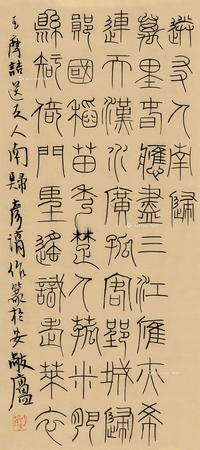 送友人南歸
萬里春應盡三江雁亦希
連天漢水廣孤客郢城歸
鄖國稻苗秀楚人菰米肥
縣知倚門望遙識老萊衣
王摩詰送友人南歸 作篆於安敝廬